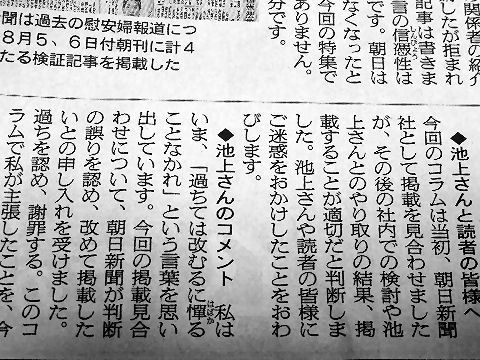 関係者の紹介
じたが拒まれ
記事は書きま
言の信憑性は
です。朝日は
なくなったと
今回の特集で
ありません。
分です。
聞は過去の慰安婦報道につ
8月5、6日付朝刊に計4
たる検証記事を掲載した
◆池上さんと読者の皆様へ
今回のコラムは当初、朝日新聞
社として掲載を見合わせました
が、その後の社内での検討や池
上さんとのやり取りの結果、掲
載することが適切だと判断しま
した。池上さんや読者の皆様に
ご迷惑をおかけしたことをおわ
びします。
◆池上さんのコメント　私は
いま、「過ちては改むるに憚る
ことなかれ」という言葉を思い
出しています。今回の掲載見合
わせについて、朝日新聞が判断
の誤りを認め、改めて掲載した
いとの申し入れを受けました。
過ちを認め、謝罪する。このコ
ラムで私が主張したことを、今